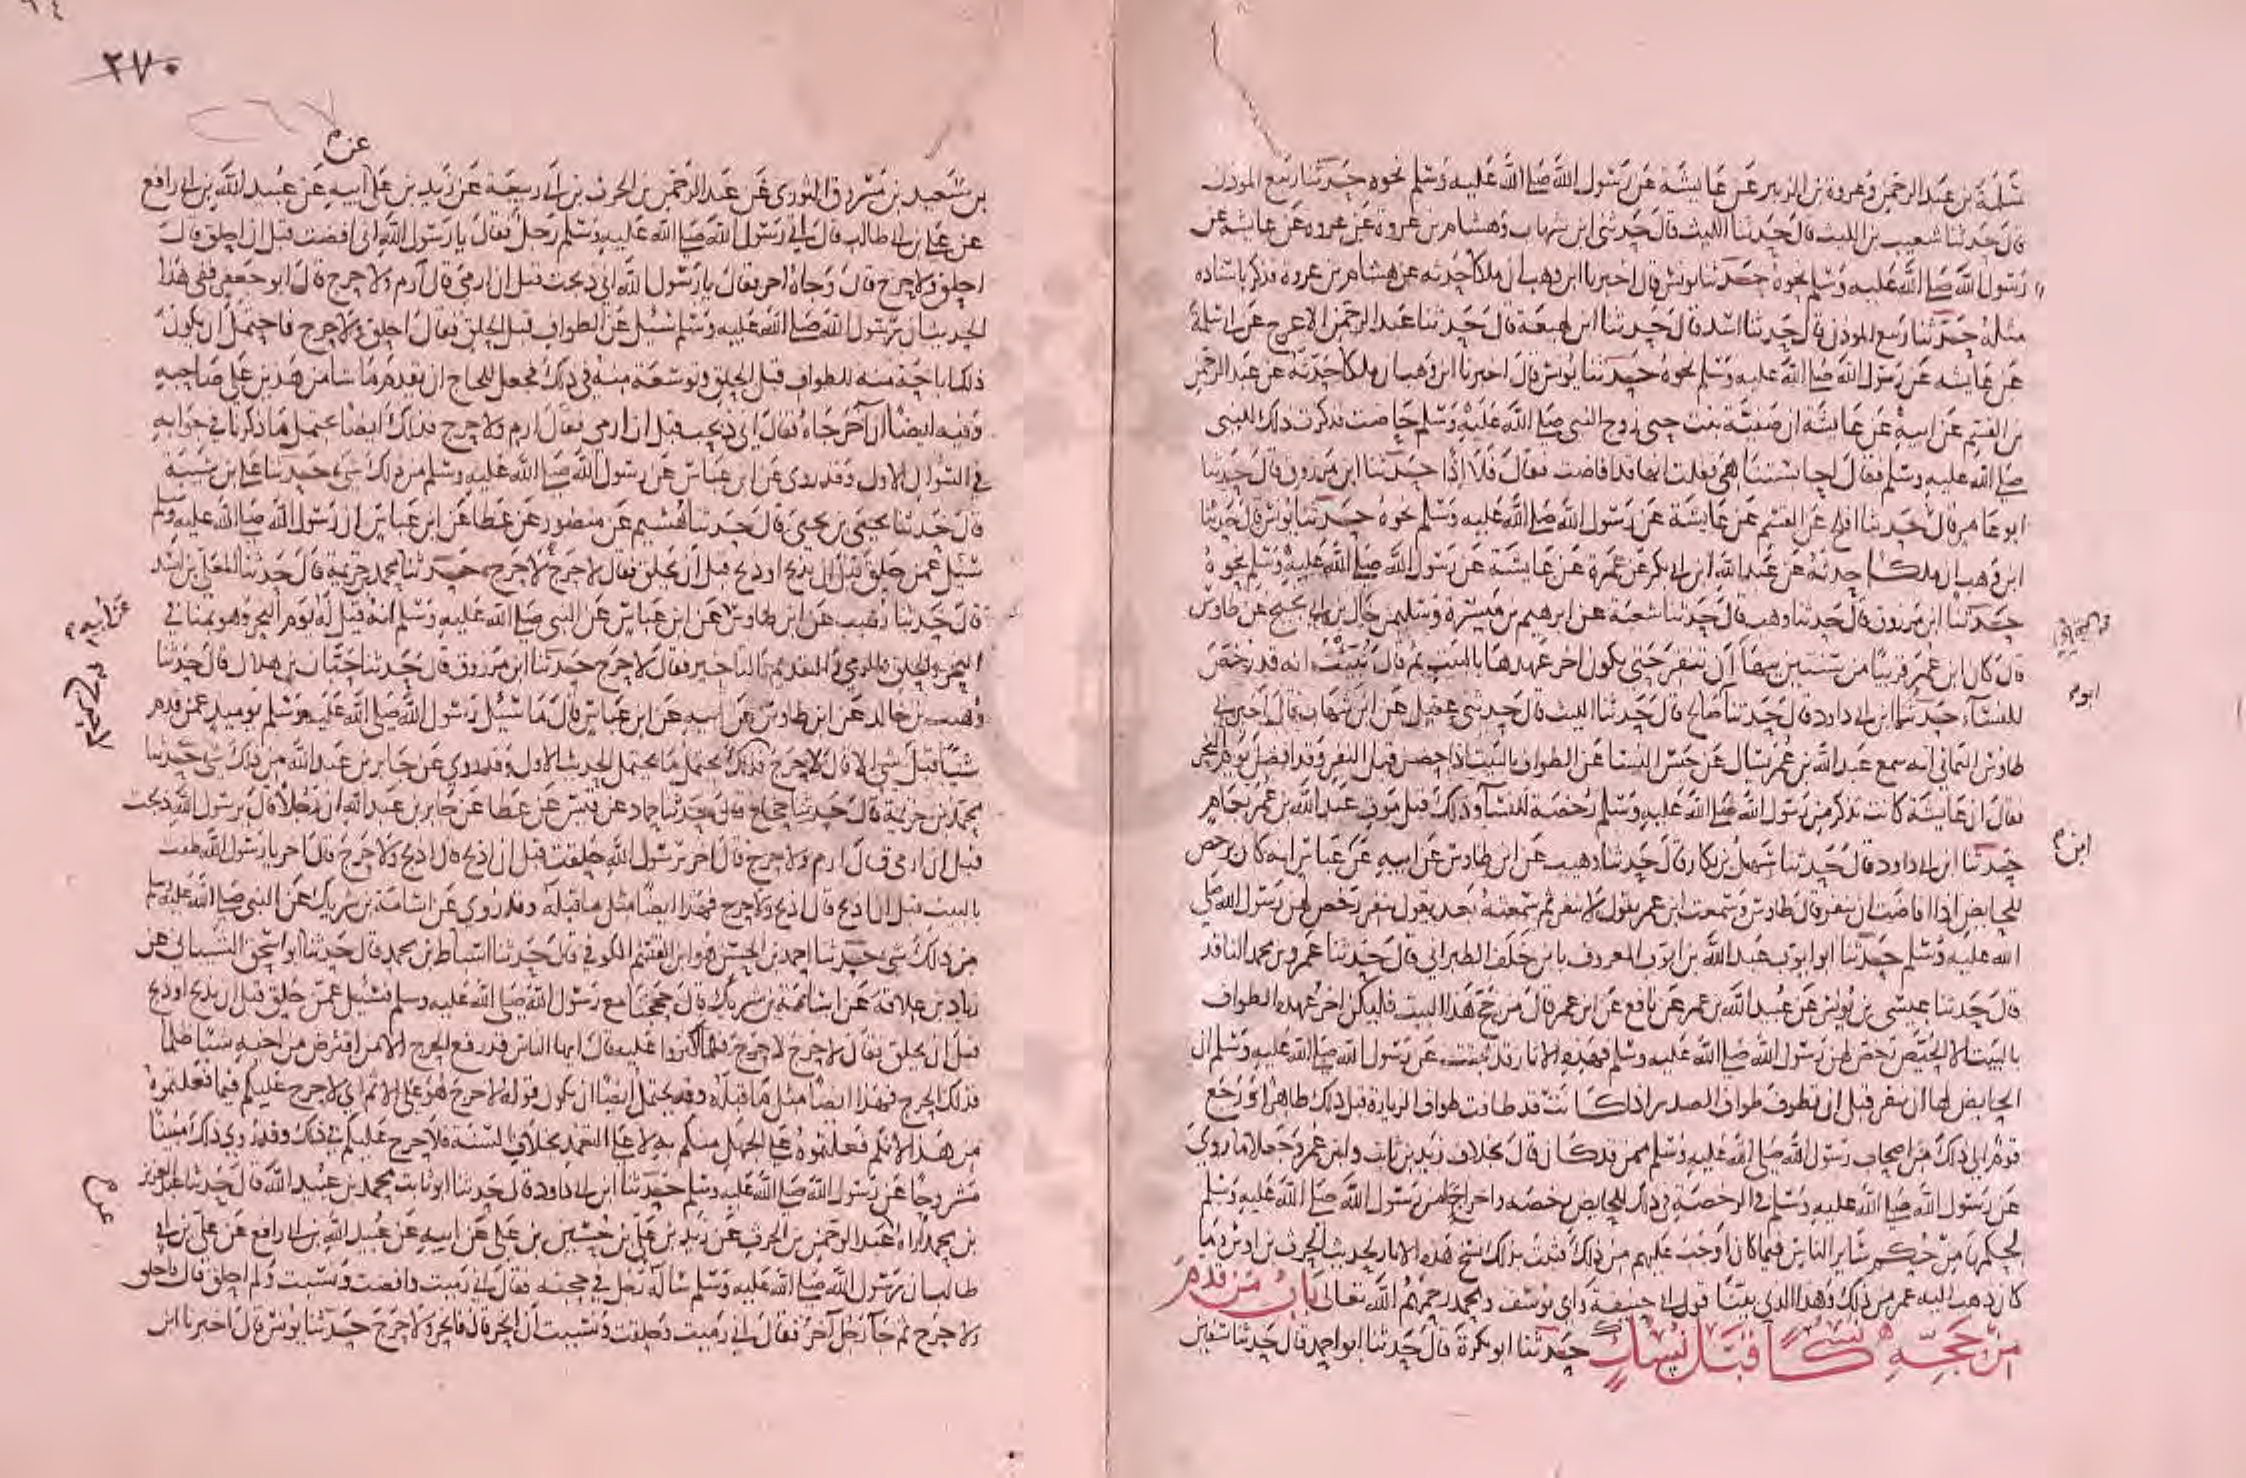 سلمة بن عبد الرحمن وعروة بن الزبير عن عايشة عن رسول الله صلى الله عليه وسلم نحوه حدثنا ربيع الموذن
قال حدثنا شعيب بن الليث قال حدثنا الليث قال حدثني ابن شهاب وهشام بن عروة عن عروه عن عايشه عن
رسول الله صلى الله عليه وسلم نحوه حدثنا يونس قال اخبرنا ابن وهب ان ملكا حدثه عن هشام بن عروة فذكر باسناده
مثله حدثنا ربيع الموذن قال حدثنا اسد قال حدثنا ابن لهيعة قال حدثنا عبد الرحمن الاعرج عن ابي سلمة
عن عايشه عن رسول الله صلى الله عليه وسلم نحوه حدثنا يونس قال اخبرنا ابن وهب ان ملكا حدثه عن عبد الرحمن
بن القسم عن ابيه عن عايشة ان صفية بنت حيي زوج النبي صلى الله عليه وسلم حاضت فذكرت ذلك للنبي
صلى الله عليه وسلم فقال احابستنا هي فقلت انها قد افاضت فقال فلا اذا حدثنا ابن مرزوق قال حدثنا
ابو عامر قال حدثنا افلح عن القسم عن عايشة عن رسول الله صلى الله عليه وسلم نحوه حدثنا يونس قال اخبرنا
ابن وهب ان ملكا حدثه عن عبد الله ابن ابي بكر عن عمرة عن عايشة عن رسول الله صلى الله عليه وسلم نحوه
حدثنا ابن مرزوق قال حدثنا وهب قال حدثنا شعبة عن ابرهيم بن ميسرة وسليمن خال بن ابي نجيح عن طاوس
قال كان ابن عمر قريبا من سنتين ينهى ان تنفر حتى يكون اخر عهدها بالبيت ثم قال نبئت انه قد رخص
للنساء حدثنا ابن ابي داود قال حدثنا صالح قال حدثنا الليث قال حدثني عقيل عن ابن شهاب قال اخبرني
ابوم
طاوس اليماني انه سمع عبد الله بن عمر يسال عن حبس النسا عن الطواف بالبيت اذا حضن قبل النفر وقد افضن يوم النحر
فقال ان عايشة كانت تذكر من رسول الله صلى الله عليه وسلم رخصة للنساء وذلك قبل موت عبد الله بن عمر بعام
حدثنا ابن ابي داود قال حدثنا سهل بن بكار قال حدثنا وهيب عن ابن طاوس عن ابيه عن عباس انه كان يرخص
ابن م
للحايض اذا افاضت ان تنفر قال طاوس وسمعت ابن عمر يقول لا تنفر ثم سمعته بعد يقول تنفر رخص لهن رسول الله صلى
الله عليه وسلم حدثنا ابو ايوب عبد الله بن ايوب المعروف بابن خلف الطبراني قال حدثنا عمرو بن محمد الناقد
قال حدثنا عيسى بن يونس عن عبيد الله بن عمر عن نافع عن ابن عمر قال من حج هذا البيت فليكن اخر عهده الطواف
بالبيت الا الحيض رخص لهن رسول الله صلى الله عليه وسلم فهذه الاثار قد ثبتت عن رسول الله صلى الله عليه وسلم ان
الحايض لها ان تنفر قبل ان تطوف طواف الصدر اذا كانت قد طافت طواف الزيارة قبل ذلك طاهرا ورجع
قوم الى ذلك من اصحاب رسول الله صلى الله عليه وسلم ممن قد كان قال بخلاف زيد بن ثابت وابن عمر وجعلا ما روي
عن رسول الله صلى الله عليه وسلم في الرخصة في ذلك للحايض رخصه واخراجا من رسول الله صلى الله عليه وسلم
لحكمها من حكم ساير الناس فيما كان اوجب عليهم من ذلك فثبت بذلك نسخ هذه الاثار لحديث الحرث بن اوس وما
كان ذهب اليه عمر من ذلك وهذا الذي بينا قول ابي حنيفة وابي يوسف ومحمد رحمهم الله تعالى باب من قدم
من حجه نسكا قبل نسك حدثنا ابو بكرة قال حدثنا ابو احمد قال حدثنا سفين
٢٧٠
عن م
بن سعيد بن مسروق الثوري عن عبد الرحمن بن الحرث بن ابي ربيعة عن زيد بن علي ابيه عن عبيد الله بن ابي رافع
عن علي بن ابي طالب قال اتى رسول الله صلى الله عليه وسلم رجل فقال يا رسول الله اني افضت قبل ان احلق قال
احلق ولا حرج قال وجاه اخر فقال يا رسول الله اني ذبحت قبل ان ارمي قال ارم ولا حرج قال ابو جعفر ففي هذا
الحديث ان رسول الله صلى الله عليه وسلم سئل عن الطواف قبل الحلق فقال احلق ولا حرج فاحتمل ان يكون
ذلك اباحة منه للطواف قبل الحلق وتوسعة منه في ذلك فجعل للحاج ان يقدم ما شا من هذين على صاحبه
وفيه ايضا ان آخر جاه فقال اني ذبحت قبل ان ارمي فقال ارم ولا حرج فذلك ايضا يحتمل ما ذكرنا في جوابه
في السؤال الاول وقد روي عن ابن عباس عن رسول الله صلى الله عليه وسلم من ذلك شي حدثنا علي بن شيبة
قال حدثنا يحيى بن يحيى قال حدثنا هشيم عن منصور عن عطا عن ابن عباس ان رسول الله صلى الله عليه وسلم
سئل عمن حلق قبل ان يذبح او ذبح قبل ان يحلق فقال لا حرج لا حرج حدثنا محمد بن خزيمة قال حدثنا المعلى بن اسد
قال حدثنا وهيب عن ابن طاوس عن ابن عباس عن النبي صلى الله عليه وسلم انه قيل له يوم النحر وهو بمنا في
عن ابيه م
النحر والحلق والرمي والتقديم والتاخير فقال لا حرج حدثنا ابن مرزوق قال حدثنا حبان بن هلال قال حدثنا
وهيب بن خالد عن ابن طاوس عن ابيه عن ابن عباس قال ما سئل رسول الله صلى الله عليه وسلم يوميذ عمن قدم
شيئا قبل شي الا قال لا حرج فذلك يحتمل ما يحتمل الحديث الاول وقد روي عن جابر بن عبد الله من ذلك شي حدثنا
محمد بن خزيمة قال حدثنا حجاج قال حدثنا حماد عن قيس عن عطا عن جابر بن عبد الله ان رجلا قال يرسول الله ذبحت
قبل ان ارمي قال ارم ولا حرج قال اخر يرسول الله حلقت قبل ان اذبح قال اذبح ولا حرج قال اخر يا رسول الله طفت
بالبيت قبل ان اذبح قال اذبح ولا حرج فهذا ايضا مثل ما قبله وقد روي عن اسامة بن شريك عن النبي صلى الله عليه وسلم
من ذلك شي حدثنا احمد بن الحسن هو ابن القسم الكوفي قال حدثنا اسباط بن محمد قال حدثنا ابو اسحق الشيباني عن
زياد بن علاقة عن اسامة بن شريك قال حججنا مع رسول الله صلى الله عليه وسلم فسئل عمن حلق قبل ان يذبح او ذبح
قبل ان يحلق فقال لا حرج لا حرج فلما اكثروا عليه قال ايها الناس قد رفع الحرج الا من اقترض من اخيه شيئا ظلما
فذلك الحرج فهذا ايضا مثل ما قبله وقد يحتمل ايضا ان يكون قوله لا حرج هو على الاثم اي لا حرج عليكم فيما فعلتموه
من هذا لانكم فعلتموه على الجهل منكم به لا على التعمد بخلاف السنة فلا حرج عليكم في ذلك وقد روي ذلك مبينا
مشروحا عن رسول الله صلى الله عليه وسلم حدثنا ابن ابي داود قال حدثنا ابو ثابت محمد بن عبيد الله قال حدثنا عبد العزيز
بن محمد اراه عبد الرحمن بن الحرث عن زيد بن علي بن حسين بن علي عن ابيه عن عبيد الله بن ابي رافع عن علي بن ابي
عن م
طالب ان رسول الله صلى الله عليه وسلم ساله رجل في حجته فقال اني رميت وافضت ونسيت ولم احلق قال فاحلق
ولا حرج ثم جا رجل آخر فقال اني رميت وحلقت ونسيت ان انحر قال فانحر ولا حرج حدثنا يونس قال اخبرنا ابن